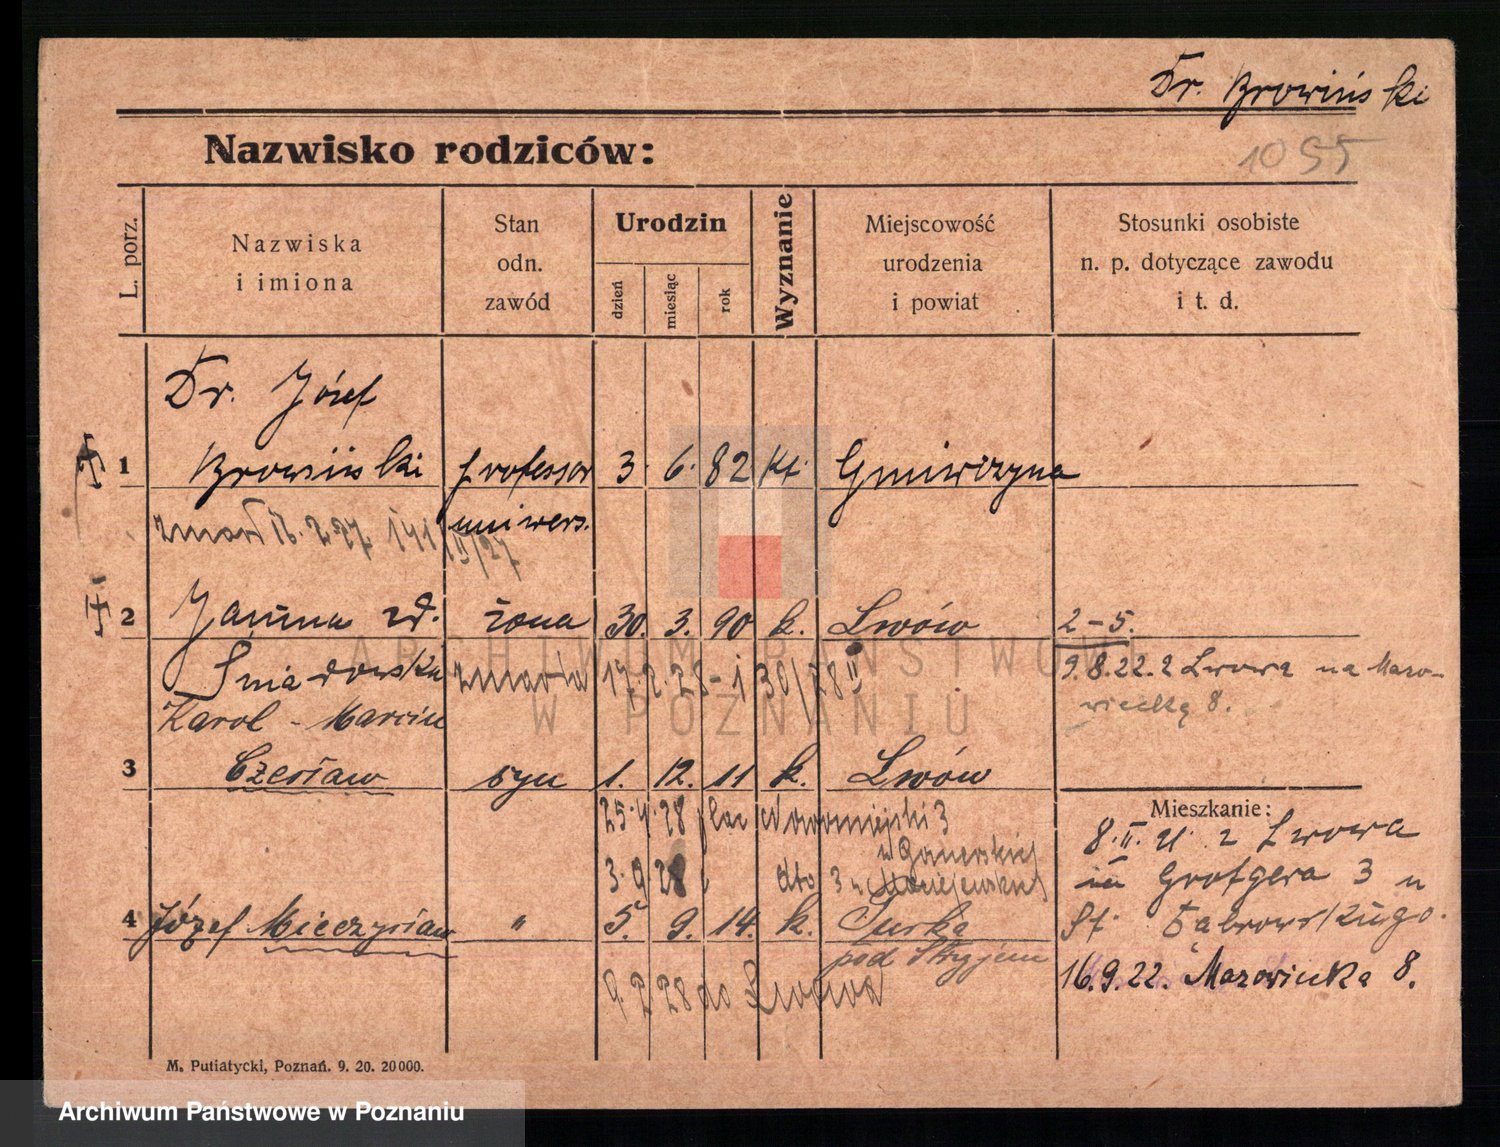 Dr. Browiński
1055
Nazwisko rodziców:
L. porz.
Nazwiska
i imiona
Stan
odn.
zawód
Urodzin
dzień
miesiąc
rok
Wyznanie
Miejscowość
urodzenia
i powiat
Stosunki osobiste
n. p. dotyczące zawodu
i t. d.
Dr. Józef
1 Browiński professor 3. 6. 82 kt. Gniwczyna
uniwers.
zmarł 16. 2 27 141 II/27
2 Janina zd. żona 30. 3. 90 k. Lwów 2-5.
Śniadowska zmarła 17. 2. 28 - i 30/28 II
9.8.22. z Lwowa na Mazo-
wiecką 8.
Karol - Marcin
3 Czesław syn 1. 12. 11 k. Lwów
Mieszkanie:
25. 4. 28 plac Nowomiejski 3
8. II. 21. z Lwowa
3. 9 28 dto 3
Grotgera 3 u
4 Józef Mieczysław " 5. 9. 14. k. Turka
pod Stryjem
St. Dąbrowskiego.
9 2 28 do Lwowa
16.9.22. Mazowiecka 8.
M. Putiatycki, Poznań. 9. 20. 20000.
ARCHIWUM PAŃSTWOWE
W POZNANIU
Archiwum Państwowe w Poznaniu